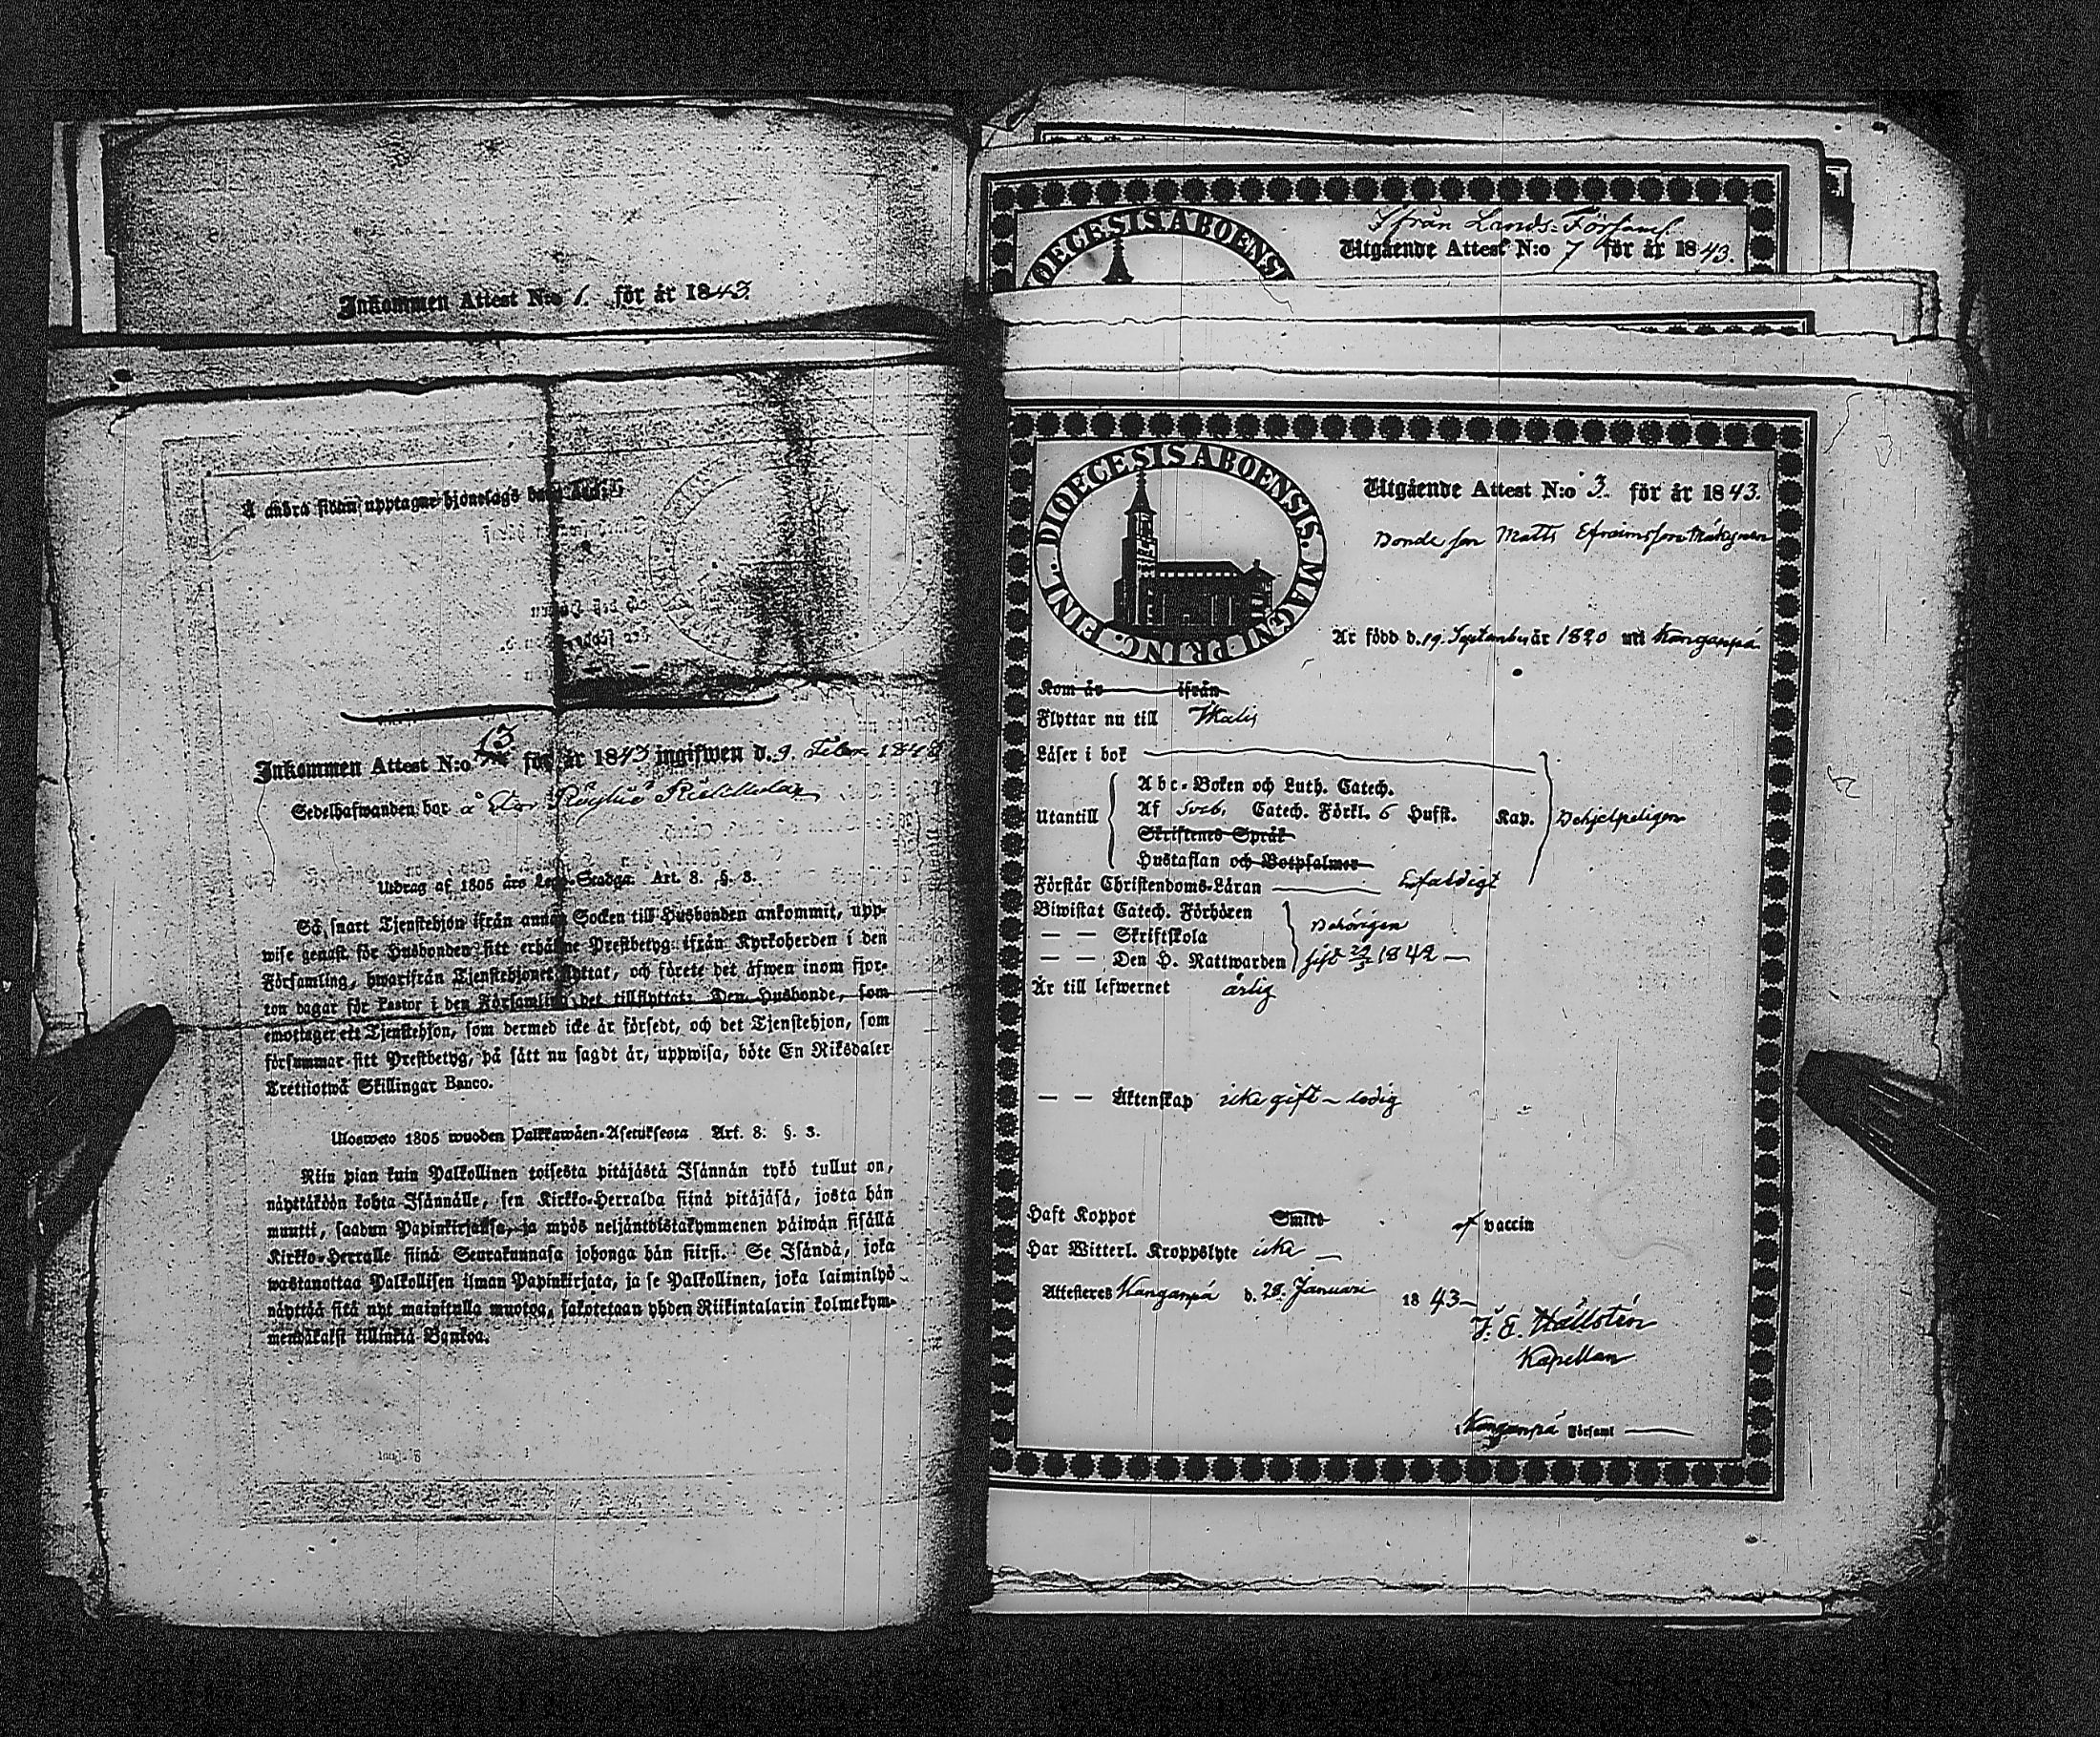 Inkommen Attest N:o 1. för år 1843.
Å andra sidan upptagne hjonelags
Inkommen Attest N:o 13 för år 1843 ingifwen d. 9. Febr. 1843
Sedelhafwanden bor å Stor Röyhiö
Utdrag af 1805 års Lego-Stadga. Art. 8. §. 3.
Så snart Tjenstehjon ifrån annan Socken till Husbonden ankommit, upp-
wise genast för Husbonden sitt erhållne Prestbetyg ifrån Kyrkoherden i den
Församling, hwarifrån Tjenstehjonet flyttat, och förete det äfwen inom fjor-
ton dagar för Pastor i den Församling det tillflyttat. Den Husbonde, som
emottager ett Tjenstehjon, som dermed icke är försedt, och det Tjenstehjon, som
försummar sitt Prestbetyg, på sätt nu sagdt är, uppwisa, böte En Riksdaler
Trettiotwå Skillingar Banco.
Ulosweto 1805 wuoden Palkkawäen-Asetuksesta Art. 8: §. 3.
Niin pian kuin Palkollinen toisesta pitäjästä Isännän tykö tullut on,
näyttäköön kohta Isännälle, sen Kirkko-Herralda siinä pitäjäsä, josta hän
muutti, saadun Papinkirjansa, ja myös neljäntoistakymmenen päiwän sisällä
Kirkko-Herralle siinä Seurakunnasa johonga hän siirsi. Se Isändä, joka
wastanottaa Palkollisen ilman Papinkirjata, ja se Palkollinen, joka laiminlyö
näyttää sitä nyt mainitulla muotoa, sakotetaan yhden Riikintalarin kolmekym-
mendäkaksi killinkiä Bankoa.
DIOECESIS ABOENSIS
Ifrån Lands-Församl.
Utgående Attest N:o 7 för år 1843.
DIOECESIS ABOENSIS. MAGNI PRINC. FINL.
Utgående Attest N:o 3. för år 1843.
Bonde son Matts Efraimsson
Är född d. 19. September år 1820 uti Kangaspä
Kom år ifrån
Flyttar nu till Ikalis
Läser i bok
Utantill
Abc-Boken och Luth. Catech.
Af Sveb. Catech. Förkl. 6 Hufst. Kap. Behjelpeligen
Skriftenes Språk
Hustaflan och Botpsalmer
Förstår Christendoms-Läran Enfaldigt
Biwistat Catech. Förhören
— — Skriftskola Behörigen
— — Den H. Nattwarden 1842 —
Är till lefwernet ärlig
— — Äktenskap icke gift – ledig
Haft Koppor Smitt af vaccin
Har Witterl. Kroppslyte icke —
Attesteres Kangaspä d. 28. Januari 1843 –
J. E. Hällstén
Kapellan
i Kangaspä Församl